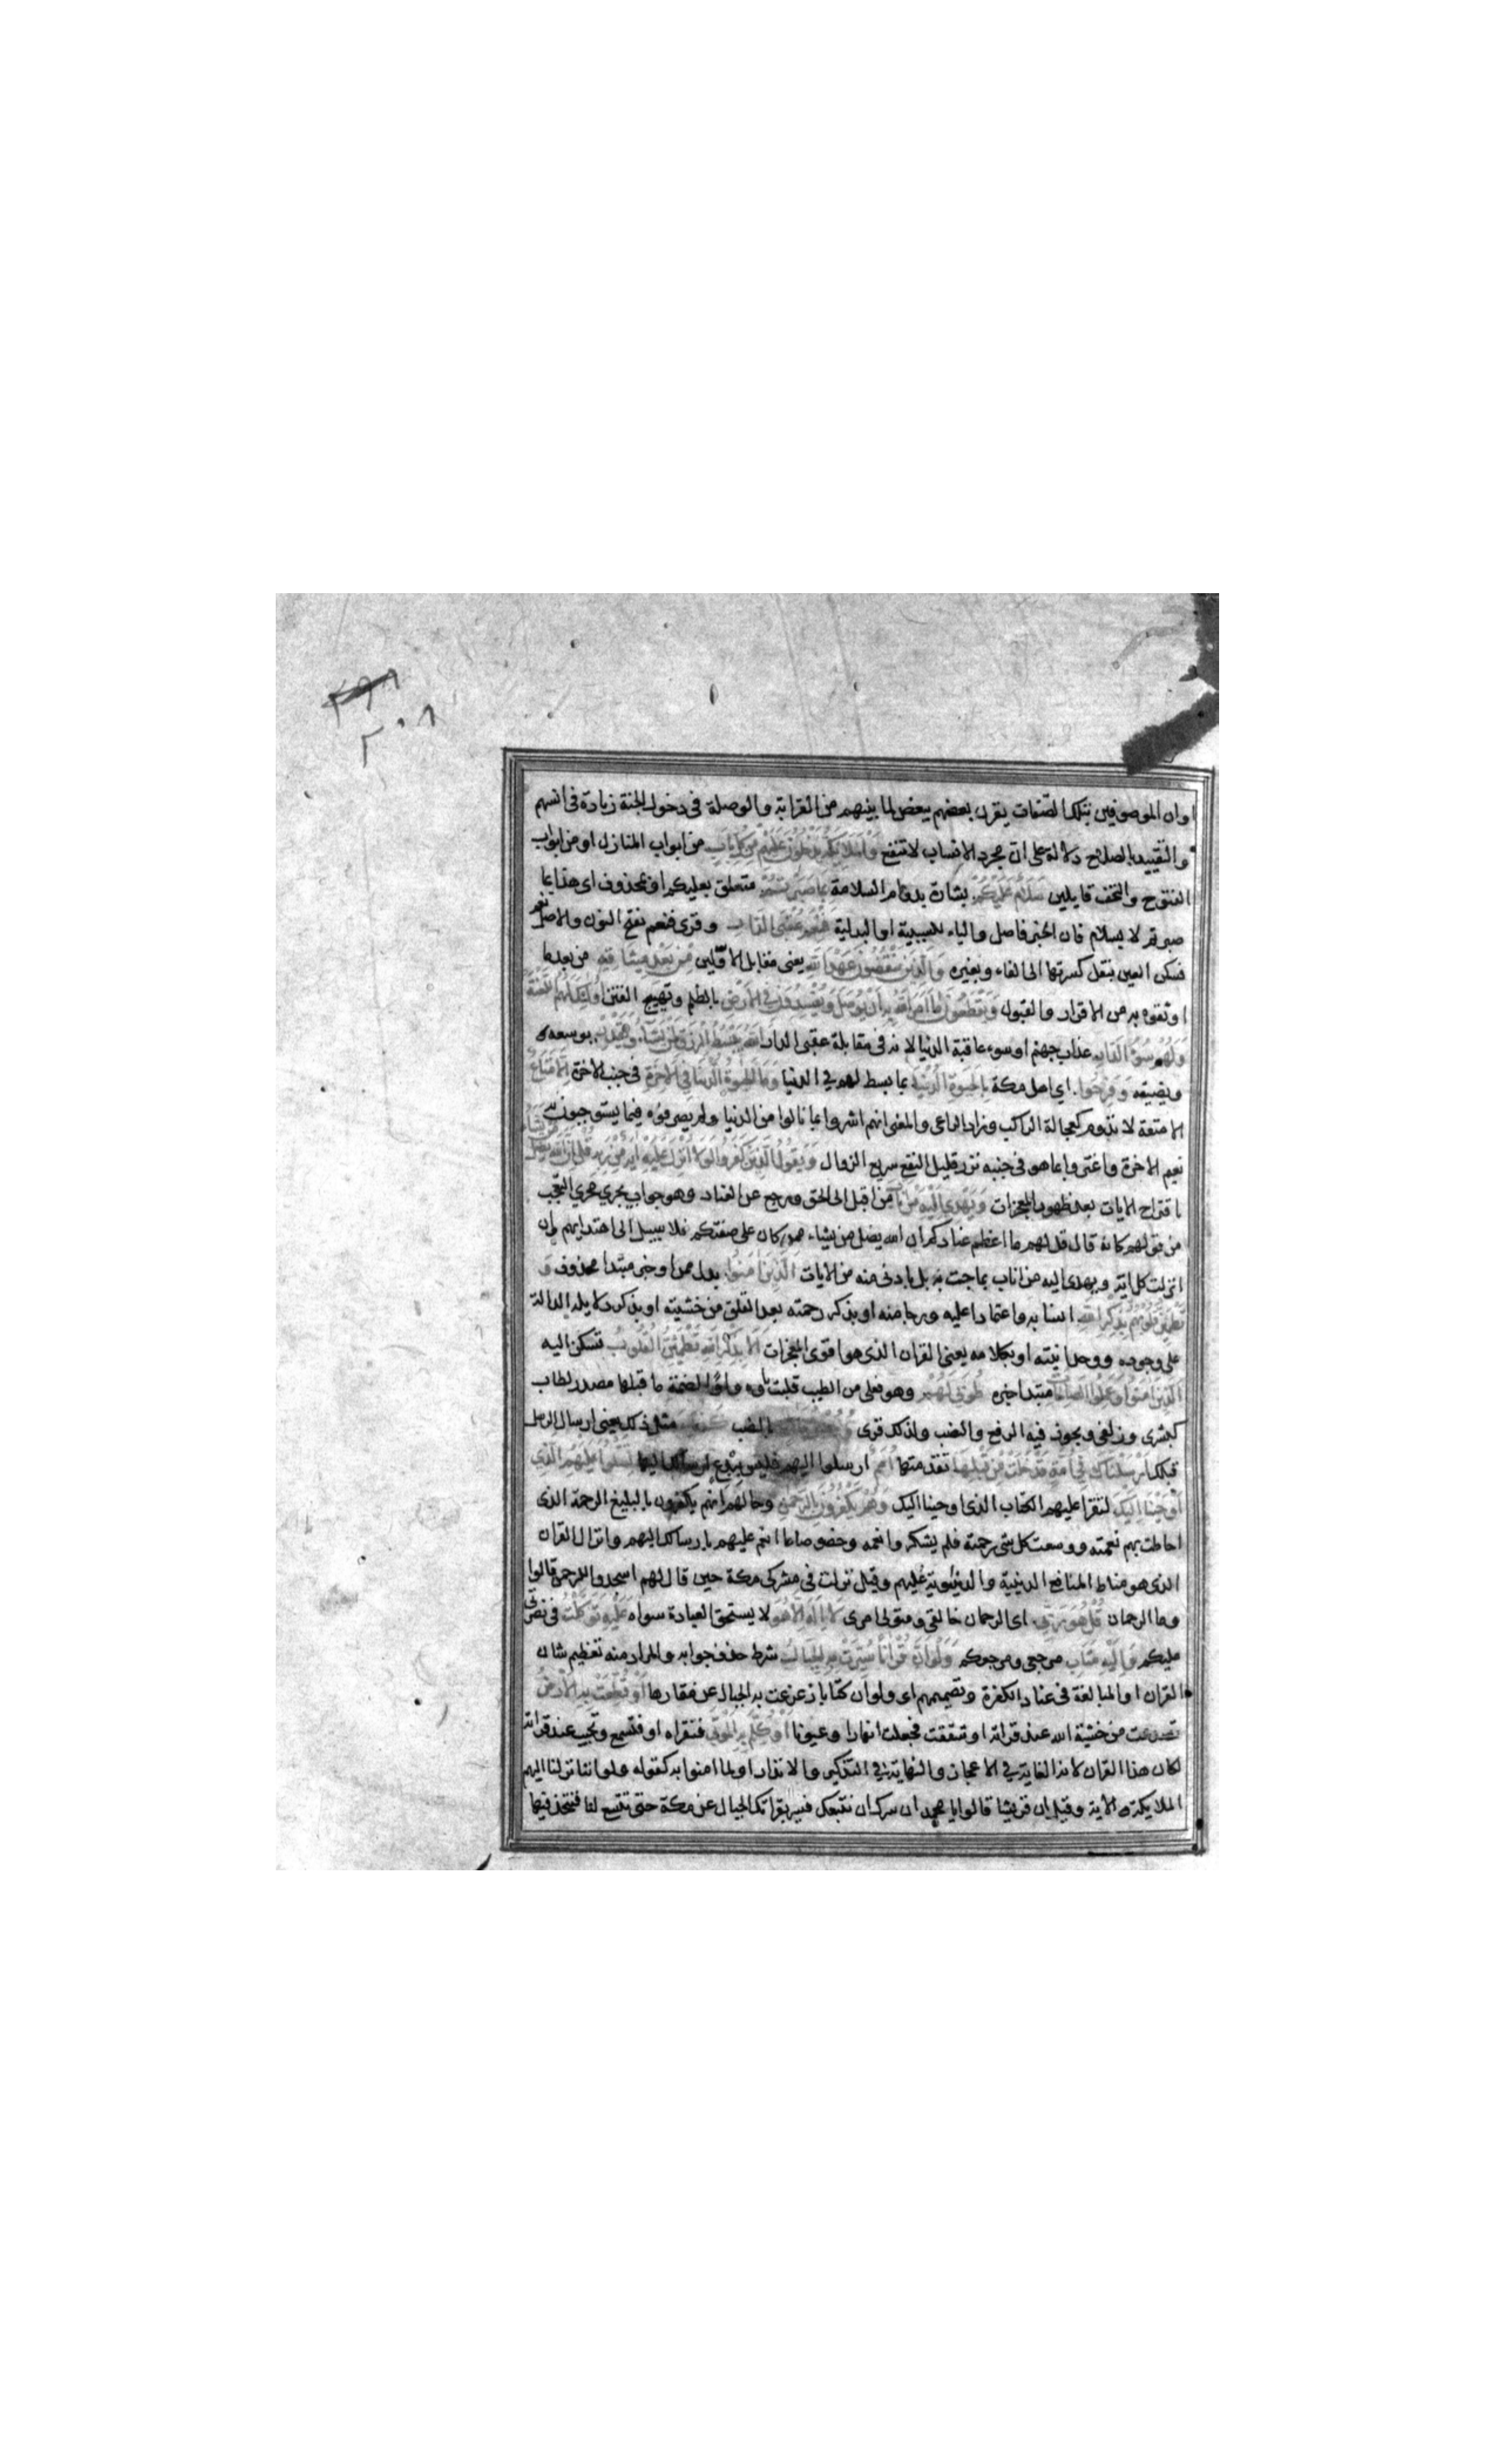 ٢٩٨
٢٠٨
او ان الموصوفين بتلك الصفات يقرن بعضهم ببعض لما بينهم من القرابة والوصلة فى دخول الجنة زيادة فى انسهم
والتقييد بالصلاح دلالة على ان مجرد الانساب لا تنفع وَالْمَلَائِكَةُ يَدْخُلُونَ عَلَيْهِمْ مِنْ كُلِّ بَابٍ من ابواب المنازل او من ابواب
الفتوح والتحف قايلين سَلَامٌ عَلَيْكُمْ بشارة بدوام السلامة بِمَا صَبَرْتُمْ متعلق بعليكم او بمحذوف اى هذا بما
صبرتم لا بسلام فان الخبر فاصل والباء للسببية او البدلية فَنِعْمَ عُقْبَى الدَّارِ وقرئ فنعم بفتح النون والاصل نعم
فسكن العين بنقل كسرتها الى الفاء وبغيره وَالَّذِينَ يَنْقُضُونَ عَهْدَ اللهِ يعنى مقابل الاولين مِنْ بَعْدِ مِيثَاقِهِ من بعد ما
اوثقوه به من الاقرار والقبول وَيَقْطَعُونَ مَا أَمَرَ اللهُ بِهِ أَنْ يُوصَلَ وَيُفْسِدُونَ فِي الْأَرْضِ بالظلم وتهييج الفتن أُولَئِكَ لَهُمُ اللَّعْنَةُ
وَلَهُمْ سُوءُ الدَّارِ عذاب جهنم او سوء عاقبة الدنيا لانه فى مقابلة عقبى الدار اللهُ يَبْسُطُ الرِّزْقَ لِمَنْ يَشَاءُ وَيَقْدِرُ يوسعه
ويضيقه وَفَرِحُوا اى اهل مكة بِالْحَيوةِ الدُّنْيَا بما بسط لهم فى الدنيا وَمَا الْحَيوةُ الدُّنْيَا فِي الْآخِرَةِ فى جنب الاخرة إِلَّا مَتَاعٌ
الا متعة لا تدوم كعجالة الراكب وزاد الراعى والمعنى انهم اشروا بما نالوا من الدنيا ولم يصرفوه فيما يستوجبون به
نعيم الاخرة واغتروا بما هو فى جنبه نزر قليل النفع سريع الزوال وَيَقُولُ الَّذِينَ كَفَرُوا لَوْلَا أُنْزِلَ عَلَيْهِ آيَةٌ مِنْ رَبِّهِ قُلْ إِنَّ اللهَ يُضِلُّ مَنْ يَشَاءُ
باقتراح الايات بعد ظهور المعجزات وَيَهْدِي إِلَيْهِ مَنْ أَنَابَ من اقبل الى الحق ورجع عن العناد وهو جواب يجرى مجرى التعجب
من قولهم كانه قال قل لهم ما اعظم عنادكم ان الله يضل من يشاء ممن كان على صفتكم فلا سبيل الى اهتدايهم وان
انزلت كل اية ويهدى اليه من اناب بما جئت به بل بادنى منه من الايات الَّذِينَ آمَنُوا بدل من من او خبر مبتدا محذوف وَ
تَطْمَئِنُّ قُلُوبُهُمْ بِذِكْرِ اللهِ انسا به واعتمادا عليه ورجا منه او بذكر رحمته بعد القلق من خشيته او بذكر دلايله الدالة
على وجوده ووحدانيته او بكلامه يعنى القران الذى هو اقوى المعجزات أَلَا بِذِكْرِ اللهِ تَطْمَئِنُّ الْقُلُوبُ تسكن اليه
الَّذِينَ آمَنُوا وَعَمِلُوا الصَّالِحَاتِ مبتدا خبره طُوبَى لَهُمْ وهو فعلى من الطيب قلبت ياوه واوا لضمة ما قبلها مصدر لطاب
كبشرى وزلفى ويجوز فيه الرفع والنصب ولذلك قرئ بالنصب مثل ذلك يعنى ارسال الرسل
قبلك أَرْسَلْنَاكَ فِي أُمَّةٍ قَدْ خَلَتْ مِنْ قَبْلِهَا تقدمتها أُمَمٌ ارسلوا اليهم فليس ببدع ارسالك اليها لِتَتْلُوَ عَلَيْهِمُ الَّذِي
أَوْحَيْنَا إِلَيْكَ لتقرا عليهم الكتاب الذى اوحينا اليك وَهُمْ يَكْفُرُونَ بِالرَّحْمَنِ وحالهم انهم يكفرون بالبليغ الرحمة الذى
احاطت بهم نعمته ووسعت كل شى رحمته فلم يشكروا نعمه وخصوصا ما انعم عليهم بارسالك اليهم وانزال القران
الذى هو مناط المنافع الدينية والدنيوية عليهم وقيل نزلت فى مشركى مكة حين قال لهم اسجدوا للرحمن قالوا
وما الرحمان قُلْ هُوَ رَبِّي اى الرحمان خالقى ومتولى امرى لَا إِلَهَ إِلَّا هُوَ لا يستحق العبادة سواه عَلَيْهِ تَوَكَّلْتُ فى نصرتى
عليكم وَإِلَيْهِ مَتَابِ مرجعى ومرجعكم وَلَوْ أَنَّ قُرْآنًا سُيِّرَتْ بِهِ الْجِبَالُ شرط حذف جوابه والمراد منه تعظيم شان
القران او المبالغة فى عناد الكفرة وتصميمهم اى ولو ان كتابا زعزعت به الجبال عن مقارها أَوْ قُطِّعَتْ بِهِ الْأَرْضُ
تصدعت من خشية الله عند قراته او تشققت فجعلت انهارا وعيونا أَوْ كُلِّمَ بِهِ الْمَوْتَى فتقراه او فتسمع وتجيب عند قراته
لكان هذا القران لانه الغاية فى الاعجاز والنهاية فى التذكير والانذار او لما امنوا به كقوله ولو اننا نزلنا اليهم
الملايكة الاية وقيل ان قريشا قالوا يا محمد ان سرك ان نتبعك فسير بقرانك الجبال عن مكة حتى تتسع لنا فنتخذ فيها